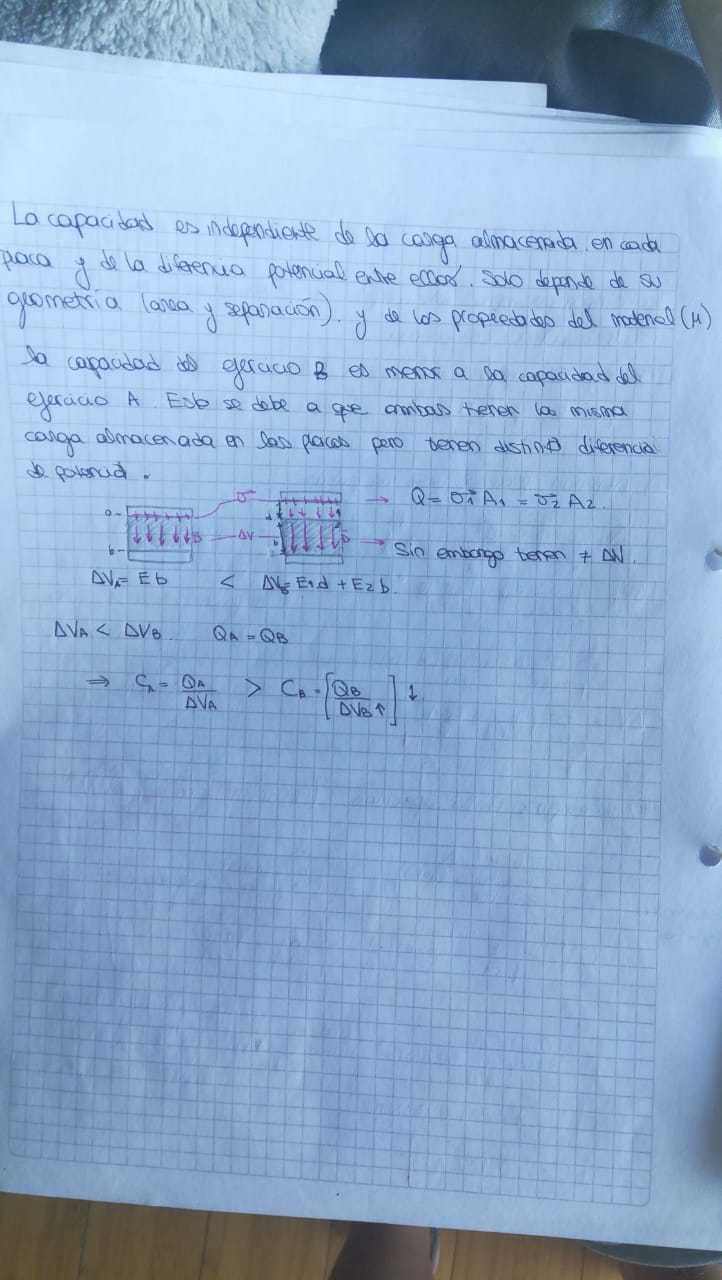 La capacidad es independiente de la carga almacenada en cada
placa y de la diferencia potencial entre ellas. Solo depende de su
geometría (area y separación). y de las propiedades del material (μ)
la capacidad del ejercicio B es menor a la capacidad del
ejercicio A. Esto se debe a que ambas tienen la misma
carga almacenada en las placas pero tienen distinta diferencia
de potencial.
σ → Q = σ1 A1 = σ2 A2.
0- b- ΔV d b → Sin embargo tienen ≠ ΔV.
ΔVA = Eb < ΔVB = E1d + E2b.
ΔVA < ΔVB. QA = QB
⇒ CA = QA/ΔVA > CB = [QB/ΔVB↑] ↓